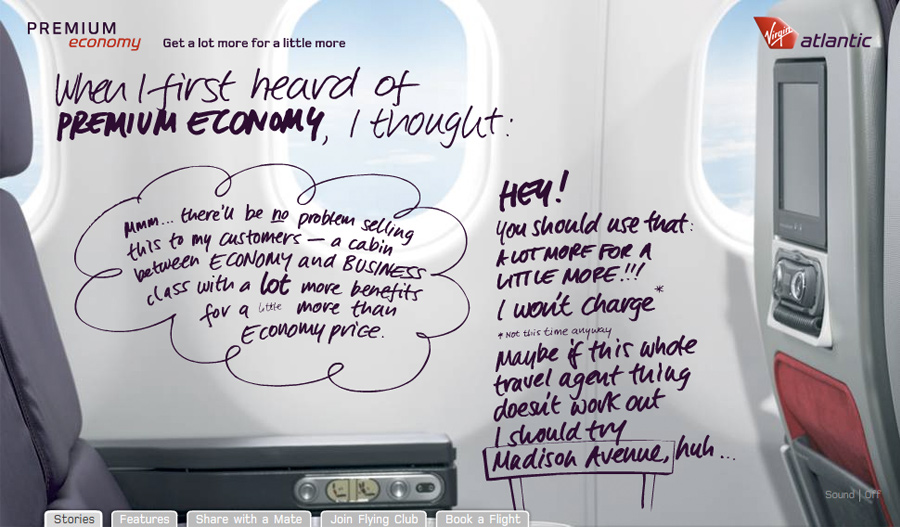 PREMIUM
economy
Get a lot more for a little more
Virgin atlantic
When I first heard of
PREMIUM ECONOMY, I thought:
Mmm... there'll be no problem selling
this to my customers – a cabin
between ECONOMY and BUSINESS
class with a lot more benefits
for a little more than
Economy price.
HEY!
You should use that:
A LOT MORE FOR A
LITTLE MORE!!!
I won't charge*
* Not this time anyway
Maybe if this whole
travel agent thing
doesn't work out
I should try
Madison Avenue, huh...
Sound | Off
Stories
Features
Share with a Mate
Join Flying Club
Book a Flight